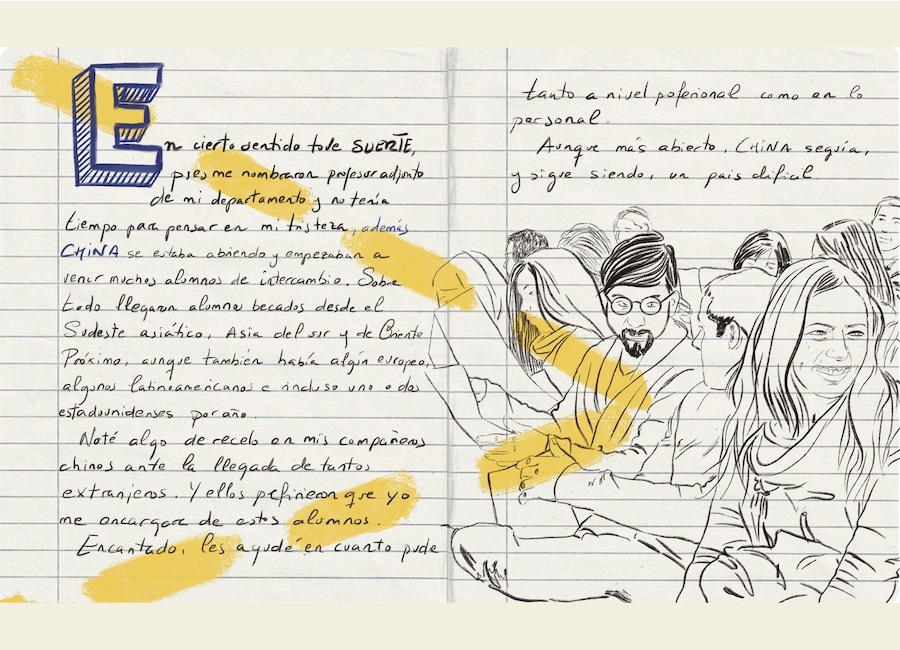 En cierto sentido tuve SUERTE,
pues me nombraron profesor adjunto
de mi departamento y no tenía
tiempo para pensar en mi tristeza, además
CHINA se estaba abriendo y empezaban a
venir muchos alumnos de intercambio. Sobre
todo llegaron alumnos becados desde el
Sudeste asiático, Asia del sur y de Oriente
Próximo, aunque también había algún europeo,
algunos latinoamericanos e incluso uno o dos
estadounidenses por año.
Noté algo de recelo en mis compañeros
chinos ante la llegada de tantos
extranjeros. Y ellos prefirieron que yo
me encargara de estos alumnos.
Encantado, les ayudé en cuanto pude
tanto a nivel profesional como en lo
personal.
Aunque más abierto, CHINA seguía,
y sigue siendo, un país difícil